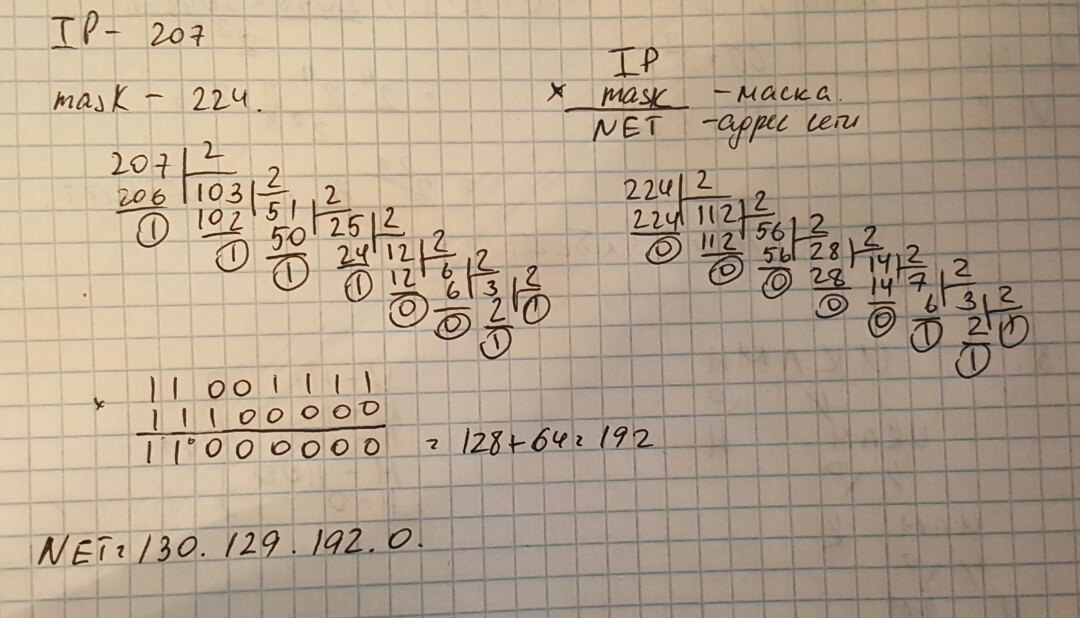 IP - 207
mask - 224.
IP
* mask - маска.
NET - адрес сети
207 | 2
206 103 | 2
1 102 51 | 2
1 50 25 | 2
1 24 12 | 2
1 12 6 | 2
0 6 3 | 2
0 2 1
1
224 | 2
224 112 | 2
0 112 56 | 2
0 56 28 | 2
0 28 14 | 2
0 14 7 | 2
0 6 3 | 2
1 2 1
1
* 1 1 0 0 1 1 1 1
1 1 1 0 0 0 0 0
1 1 0 0 0 0 0 0 = 128 + 64 = 192
NET = 130. 129. 192. 0.